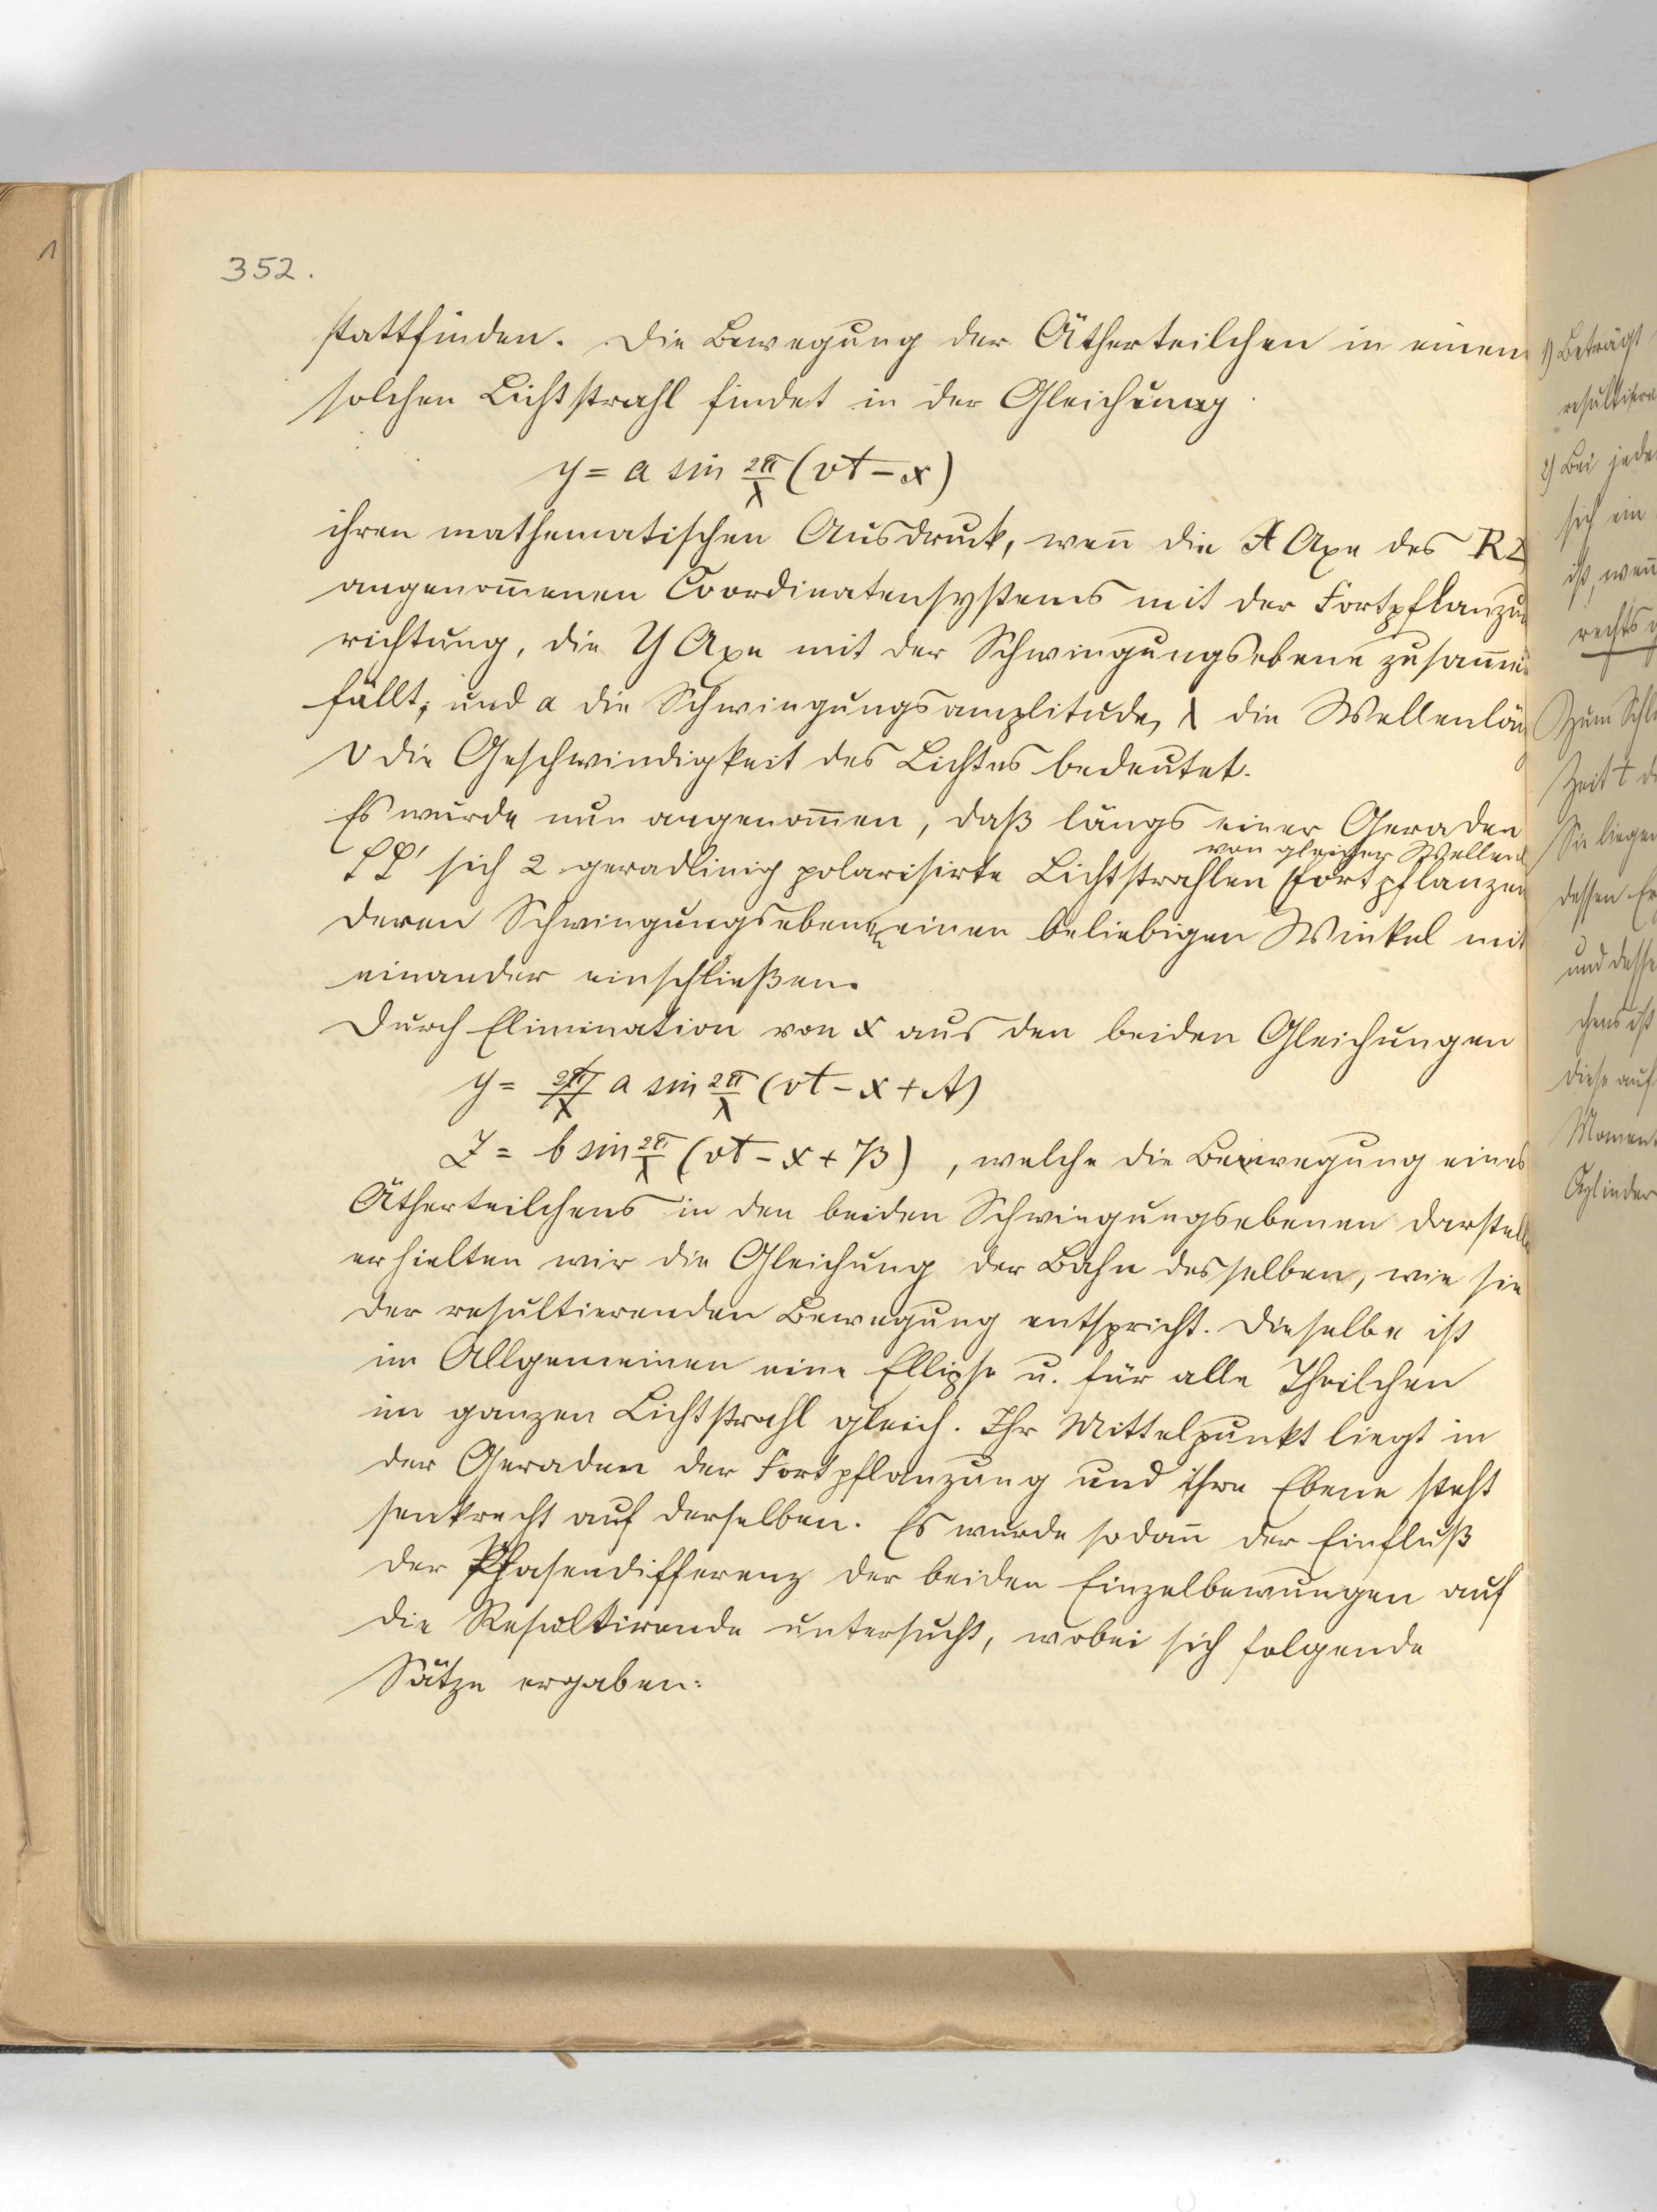 352.
stattfinden. Die Bewegung der Ätherteilchen in einem
solchen Lichtstrahl findet in der Gleichung
y = a sin 2π/λ (vt - x)
ihren mathematischen Ausdruck, wen̄ die X Axe des
angenom̄enen Coordinatensystems mit der Fortpflanzu
richtung, die Y Axe mit der Schwingungsebene zusam̄en
fällt, und a die Schwingungsamplitude, λ die Wellenlän
v die Geschwindigkeit des Lichtes bedeutet.
Es wurde nun angenom̄en, daß längs einer Geraden
von gleicher Wellenl
PP' sich 2 geradlinig polarisirte Lichtstrahlen fortpflanzen
deren Schwingungsebenen einen beliebigen Winkel mit
einander einschließen.
Durch Elimination von x aus den beiden Gleichungen
y = 2π/λ a sin 2π/λ (vt - x + A)
z = b sin 2π/λ (vt - x + B) , welche die Bewegung eines
Ätherteilchens in den beiden Schwingungsebenen darstelle
erhielten wir die Gleichung der Bahn desselben, wie sie
der resultierenden Bewegung entspricht. Dieselbe ist
im Allgemeinen eine Ellipse u. für alle Theilchen
im ganzen Lichtstrahl gleich. Ihr Mittelpunkt liegt in
der Geraden der Fortpflanzung und ihre Ebene steht
senkrecht auf derselben. Es wurde sodan̄ der Einfluß
der Phasendifferenz der beiden Einzelbewungen auf
die Resultirende untersucht, wobei sich folgende
Sätze ergaben:
1) Beträgt
resultiren
2) Bei jede
sich ein
ist, wen̄
rechts
Zum Schl
Zeit t d
Sie liegen
dessen Er
und desse
chens ist
diese auf
Moment
Cylinder